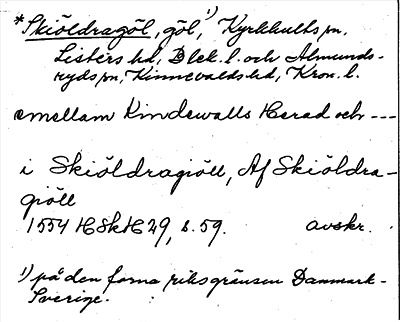 *Skiöldragöl, göl, 1) Kyrkhults sn,
Listers hd, Blek. l. och Almunds-
ryds sn, Kinnevalds hd, Kron. l.
emellam Kindewalls Herad och ---
i Skiöldragiöll, Af Skiöldra-
giöll
1554 HSkH 29, s. 59. avskr.
1) på den forna riksgränsen Danmark-
Sverige.